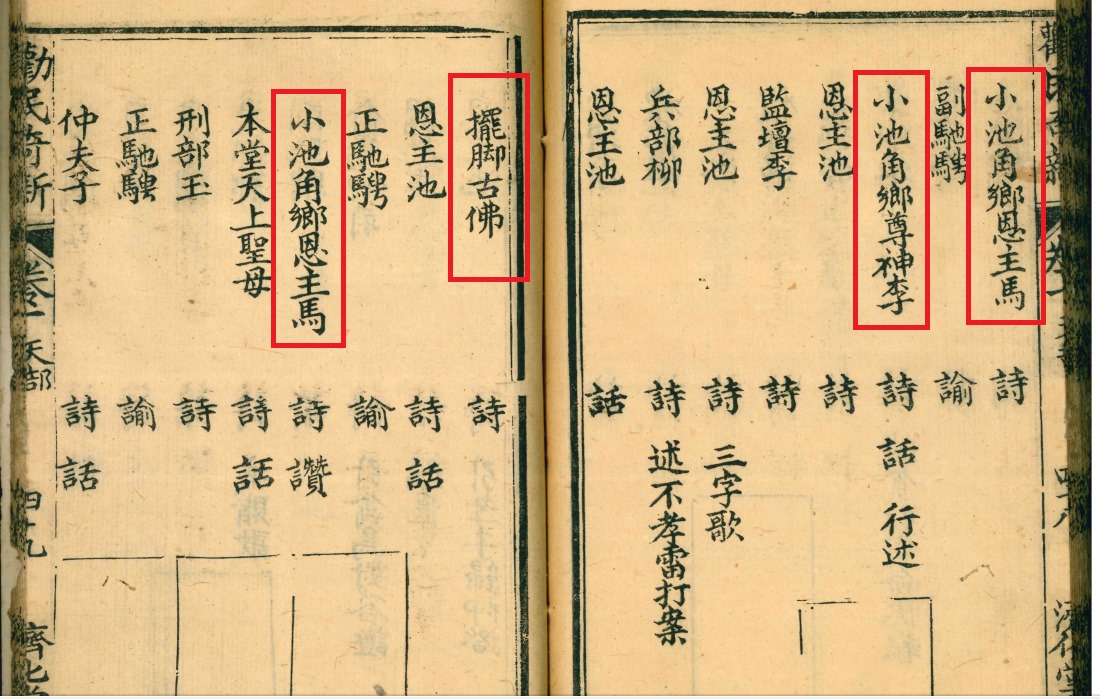 小池角鄉恩主馬 詩
副馳騁 諭
小池角鄉尊神李 詩 話 行述
恩主池 詩
監壇李 詩
恩主池 詩 三字歌
兵部柳 詩 述不孝雷打案
恩主池 話
擺脚古佛 詩
恩主池 詩 話
正馳騁 諭
小池角鄉恩主馬 詩 讚
本堂天上聖母 詩 話
刑部王 詩
正馳騁 諭
仲夫子 詩 話
勸民 新 卷一 天部 四十九 濟化